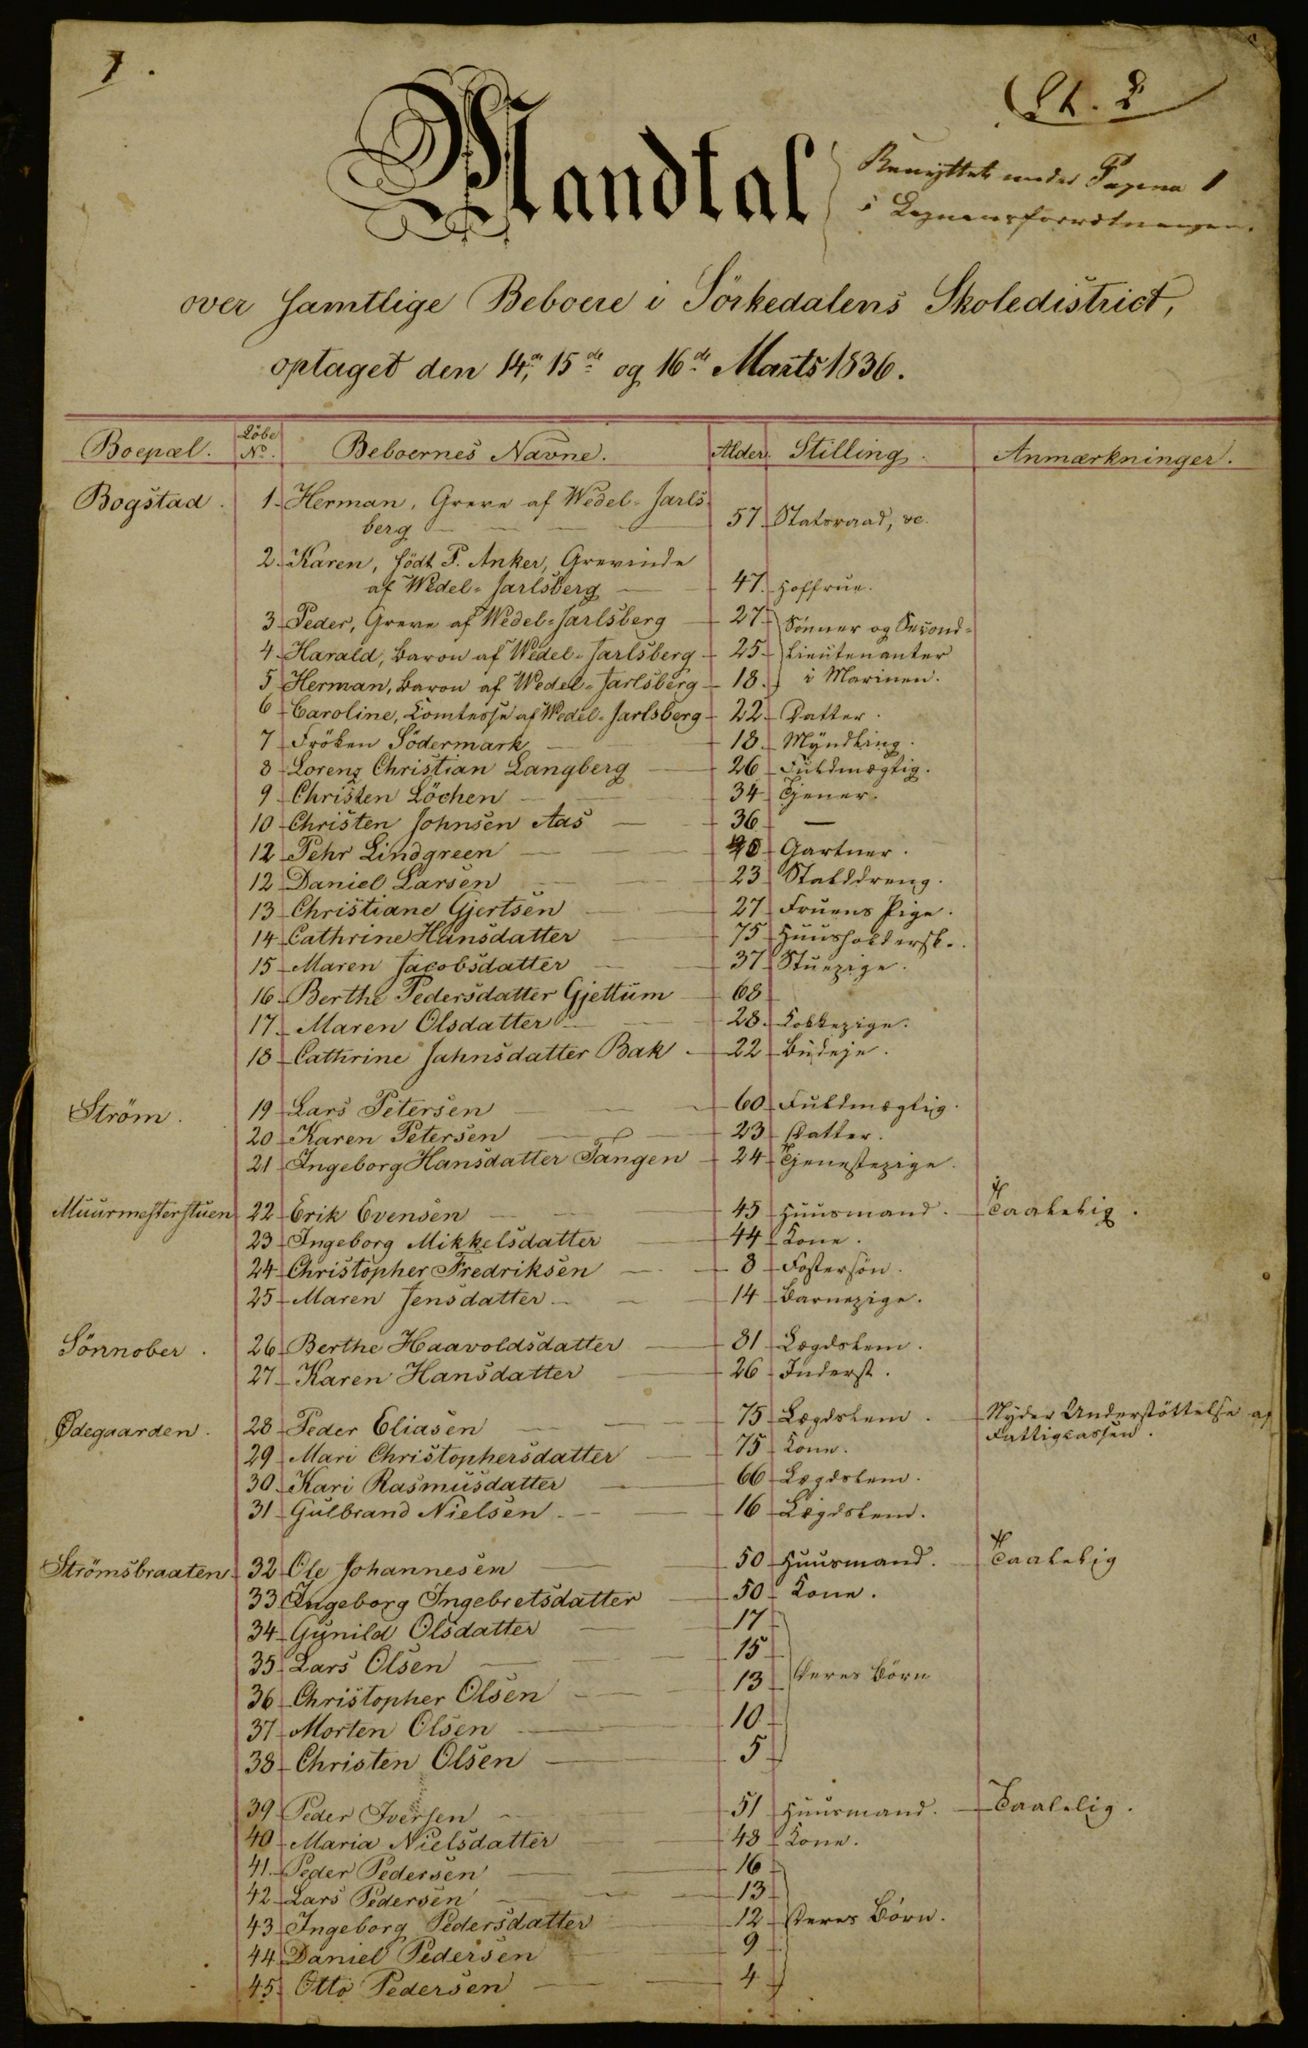 1.
Mandtal
Benyttet under Pagina 1
i
over samtlige Beboere i Sörkedalens Skoledistrict,
optaget den 14de, 15de og 16de Marts 1836.
Boepæl. Löbe No. Beboernes Navne. Alder. Stilling. Anmærkninger.
Bogstad. 1. Herman, Greve af Wedel-Jarls-
berg 57 Statsraad, &c.
2. Karen, födt P. Anker, Grevinde
af Wedel-Jarlsberg 47. Hoffrue.
3 Peder, Greve af Wedel-Jarlsberg 27 Sönner og Second-
4 Harald, Baron af Wedel-Jarlsberg 25 Lieutenanter
5 Herman, Baron af Wedel-Jarlsberg 18. i Marinen.
6 Caroline, Comtesse af Wedel-Jarlsberg 22 Datter.
7 Fröken Södermark 18. Myndling.
8 Lorenz Christian Langberg 26 Fuldmægtig.
9 Christen Löchen 34 Tjener.
10 Christen Johnsen Aas 36 —
12 Pehr Lindgreen 40 Gartner.
12 Daniel Larsen 23 Stalddreng.
13 Christiane Gjertsen 27 Fruens Pige.
14 Cathrine Hansdatter 75 Huusholdersk.
15 Maren Jacobsdatter 37 Stuepige.
16 Berthe Pedersdatter Gjettum 68
17 Maren Olsdatter 28. Kokkepige.
18 Cathrine Jahnsdatter Bak 22 Budeje.
Ström. 19 Lars Petersen 60 Fuldmægtig.
20 Karen Petersen 23 Datter.
21 Ingeborg Hansdatter Tangen 24 Tjenestepige.
Muurmesterstuen 22 Erik Evensen 45 Huusmand. Taalelig.
23 Ingeborg Mikkelsdatter 44 Kone.
24 Christopher Fredriksen 8 Fostersön.
25 Maren Jensdatter 14 Barnepige.
Sönnober. 26 Berthe Haavoldsdatter 81 Lægdslem.
27 Karen Hansdatter 26 Inderst.
Ødegaarden. 28 Peder Eliasen 75 Lægdslem. Nyder Understöttelse af
29 Mari Christophersdatter 75 Kone. Fattigcassen.
30 Kari Rasmusdatter 66 Lægdslem.
31 Gulbrand Nielsen 16 Lægdslem.
Strömsbraaten 32 Ole Johannesen 50 Huusmand. Taalelig
33 Ingeborg Ingebretsdatter 50 Kone.
34 Gunild Olsdatter 17
35 Lars Olsen 15
36 Christopher Olsen 13 Deres Börn
37 Morten Olsen 10
38 Christen Olsen 5
39 Peder Iversen 51 Huusmand. Taalelig.
40 Maria Nielsdatter 48 Kone.
41. Peder Pedersen 16
42 Lars Pedersen 13
43 Ingeborg Pedersdatter 12 Deres Börn.
44 Daniel Pedersen 9
45 Otto Pedersen 4